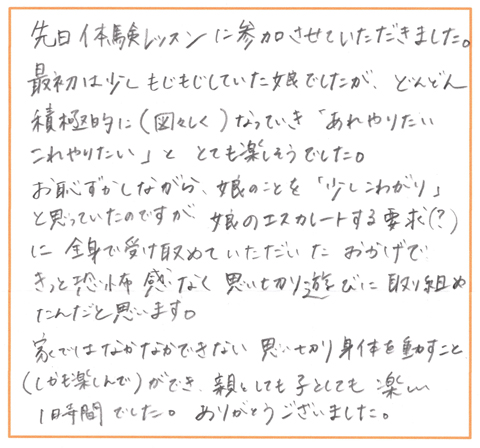 先日体験レッスンに参加させていただきました。
最初は少しもじもじしていた娘でしたが、どんどん
積極的に（図々しく）なっていき「あれやりたい
これやりたい」と とても楽しそうでした。
お恥ずかしながら、娘のことを「少しこわがり」
と思っていたのですが 娘のエスカレートする要求(？)
に 全身で受け取めていただいた おかげで
きっと恐怖感なく 思い切り遊びに取り組め
たんだと思います。
家ではなかなかできない 思い切り身体を動すこと
（しかも楽しんで）ができ、親としても子としても 楽しい
1時間でした。ありがとうございました。